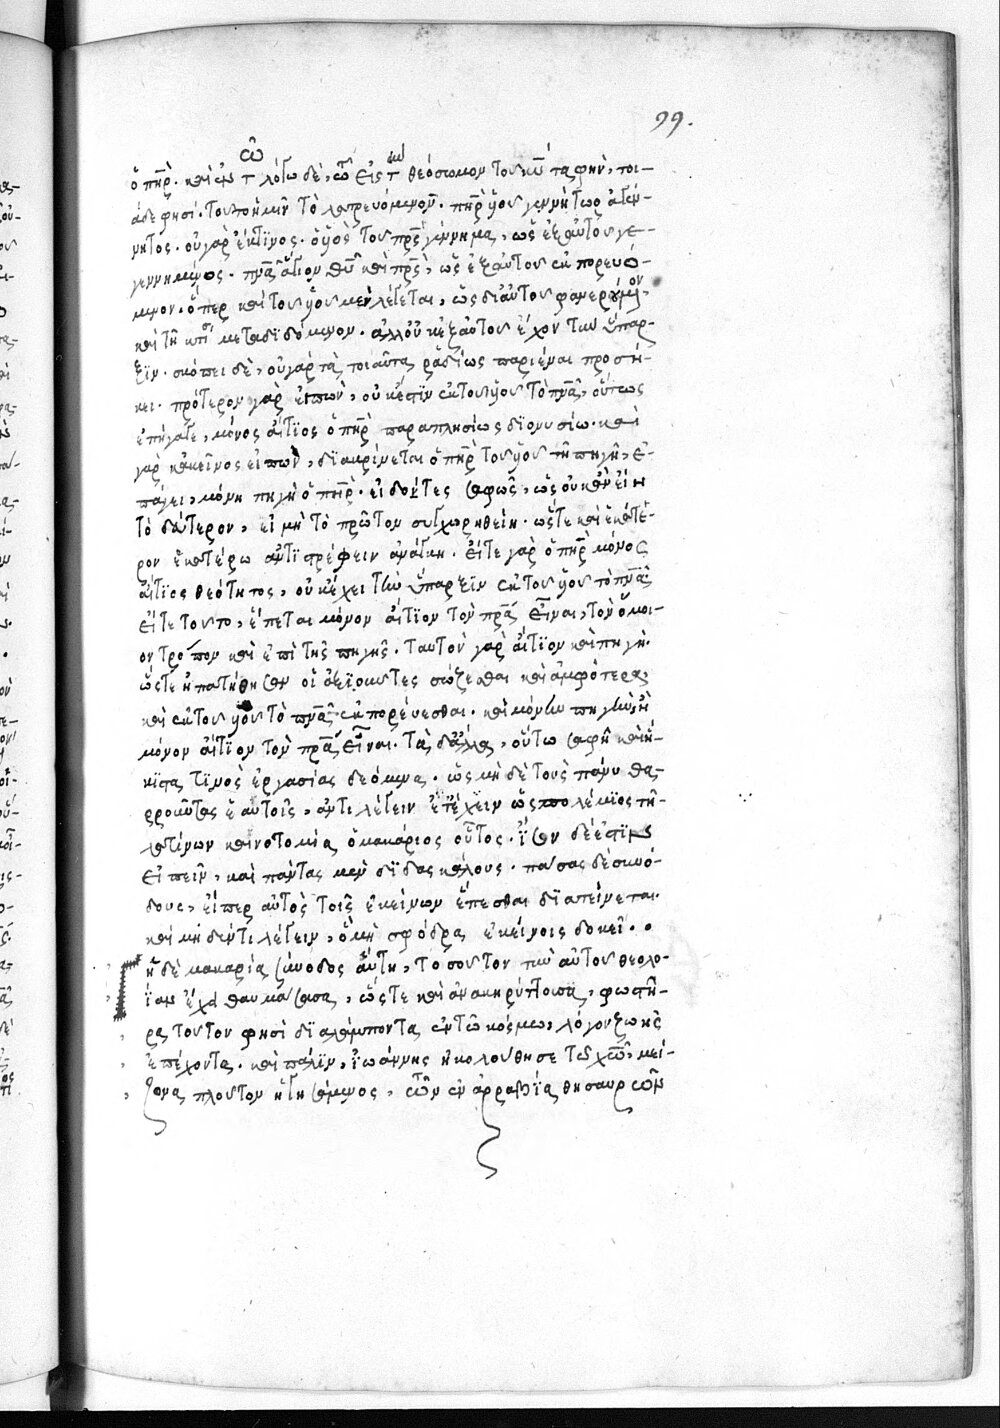 99.
ὁ πηρ. καὶ ἐν τ λόγω δὲ, ὧ εἰς τ θεόσωμον τοῦ κυ ταφὴν, τοι-
άδε φησί. τοῦτο ἡμῖν τὸ λατρευόμενον. πηρ υος γεννήτωρ ἀγέν-
νητος. οὐ γὰρ ἔκτινος. ὁ υος τοῦ πρς γέννημα, ὡς ἐξ αὐτοῦ γε-
γεννημένος. πνα ἅγιον θυ καὶ πρς, ὡς ἐξ αὐτοῦ ἐκπορευό-
μενον. ὅπερ καὶ τοῦ υου μὲν λέγεται, ὡς δι' αὐτοῦ φανερούμενον,
καὶ τῆ κτίσει μεταδιδόμενον. ἀλλ' οὐκ ἐξ αὐτοῦ ἔχον τὴν ὕπαρ-
ξιν. σκόπει δὲ, οὐ γὰρ τὰ τοιαῦτα ῥαδίως παριέναι προσή-
κει. πρότερον γὰρ εἰπὼν, οὐκ ἔστιν ἐκ τοῦ υου τὸ πνα, οὕτως
ἐπήγαγε, μόνος αἴτιος ὁ πηρ παραπλησίως διονυσίω. καὶ
γὰρ κἀκεῖνος εἰπὼν, διακρίνεται ὁ πηρ τοῦ υου τῆ πηγῆ, ἐ-
πάγει, μόνη πηγὴ ὁ πηρ. εἰδότες σαφῶς, ὡς οὐκ ἂν εἴη
τὸ δεύτερον, εἰ μὴ τὸ πρῶτον συγχωρηθείη. ὥστε καὶ ἑκάτε-
ρον ἑκατέρω ἀντιστρέφειν ἀνάγκη. εἴτε γὰρ ὁ πηρ μόνος
αἴτιος θεότητος, οὐκ ἔχει τὴν ὕπαρξιν ἐκ τοῦ υου τὸ πνα
εἴτε τοῦτο, ἕπεται μόνον αἴτιον τὸν πρα εἶναι, τὸν ὅμοι-
ον τρόπον καὶ ἐπὶ τῆς πηγῆς. ταυτὸν γὰρ αἴτιον καὶ πηγή.
ὥστε ἠπατήθησαν οἱ ἀξιοῦντες σώζεσθαι καὶ ἀμφότερα,
καὶ ἐκ τοῦ υου τὸ πνα ἐκπορεύεσθαι. καὶ μόνην πηγὴν, ἢ
μόνον αἴτιον τὸν πρα εἶναι. τὰ δ' ἄλλα, οὕτω σαφῆ καὶ ἥ-
κιστα τινὸς ἐργασίας δεόμενα. ὡς μηδὲ τοὺς πάνυ θα-
ρροῦντας ἑαυτοῖς, ἀντιλέγειν ἔτ' ἔχειν ὡς πολέμιος τῆ
λατίνων καινοτομία ὁ μακάριος οὗτος. ἴσον δέ ἐστιν
εἰπεῖν, καὶ πάντας μὲν διδασκάλους. πάσας δὲ συνό-
δους, εἴπερ αὐτὸς τοῖς ἐκείνων ἕπεσθαι διατείνεται.
καὶ μηδὲν τι λέγειν, ὃ μὴ σφόδρα ἐκείνοις δοκεῖ.
ἡ δὲ μακαρία σύνοδος αὕτη, τοσοῦτον τὴν αὐτοῦ θεολο-
γίαν ἔχει θαυμάσασα, ὥστε καὶ ἀνακηρύττουσα, φωστῆ-
ρα τοῦτον φησὶ διαλάμποντα ἐν τῶ κόσμω, λόγον ζωῆς
ἐπέχοντα. καὶ πάλιν, ἰωάννης ἠκολούθησε τῶ χω, μεί-
ζονα πλοῦτον ἡγησάμενος, τῶν ἐν ἀρραβία θησαυρῶν